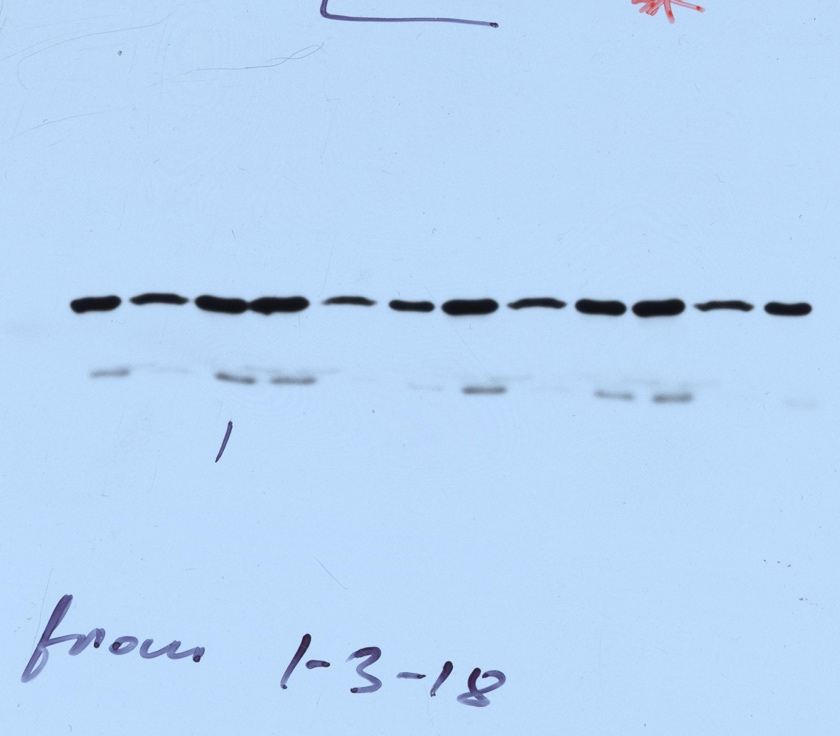 from 1-3-18